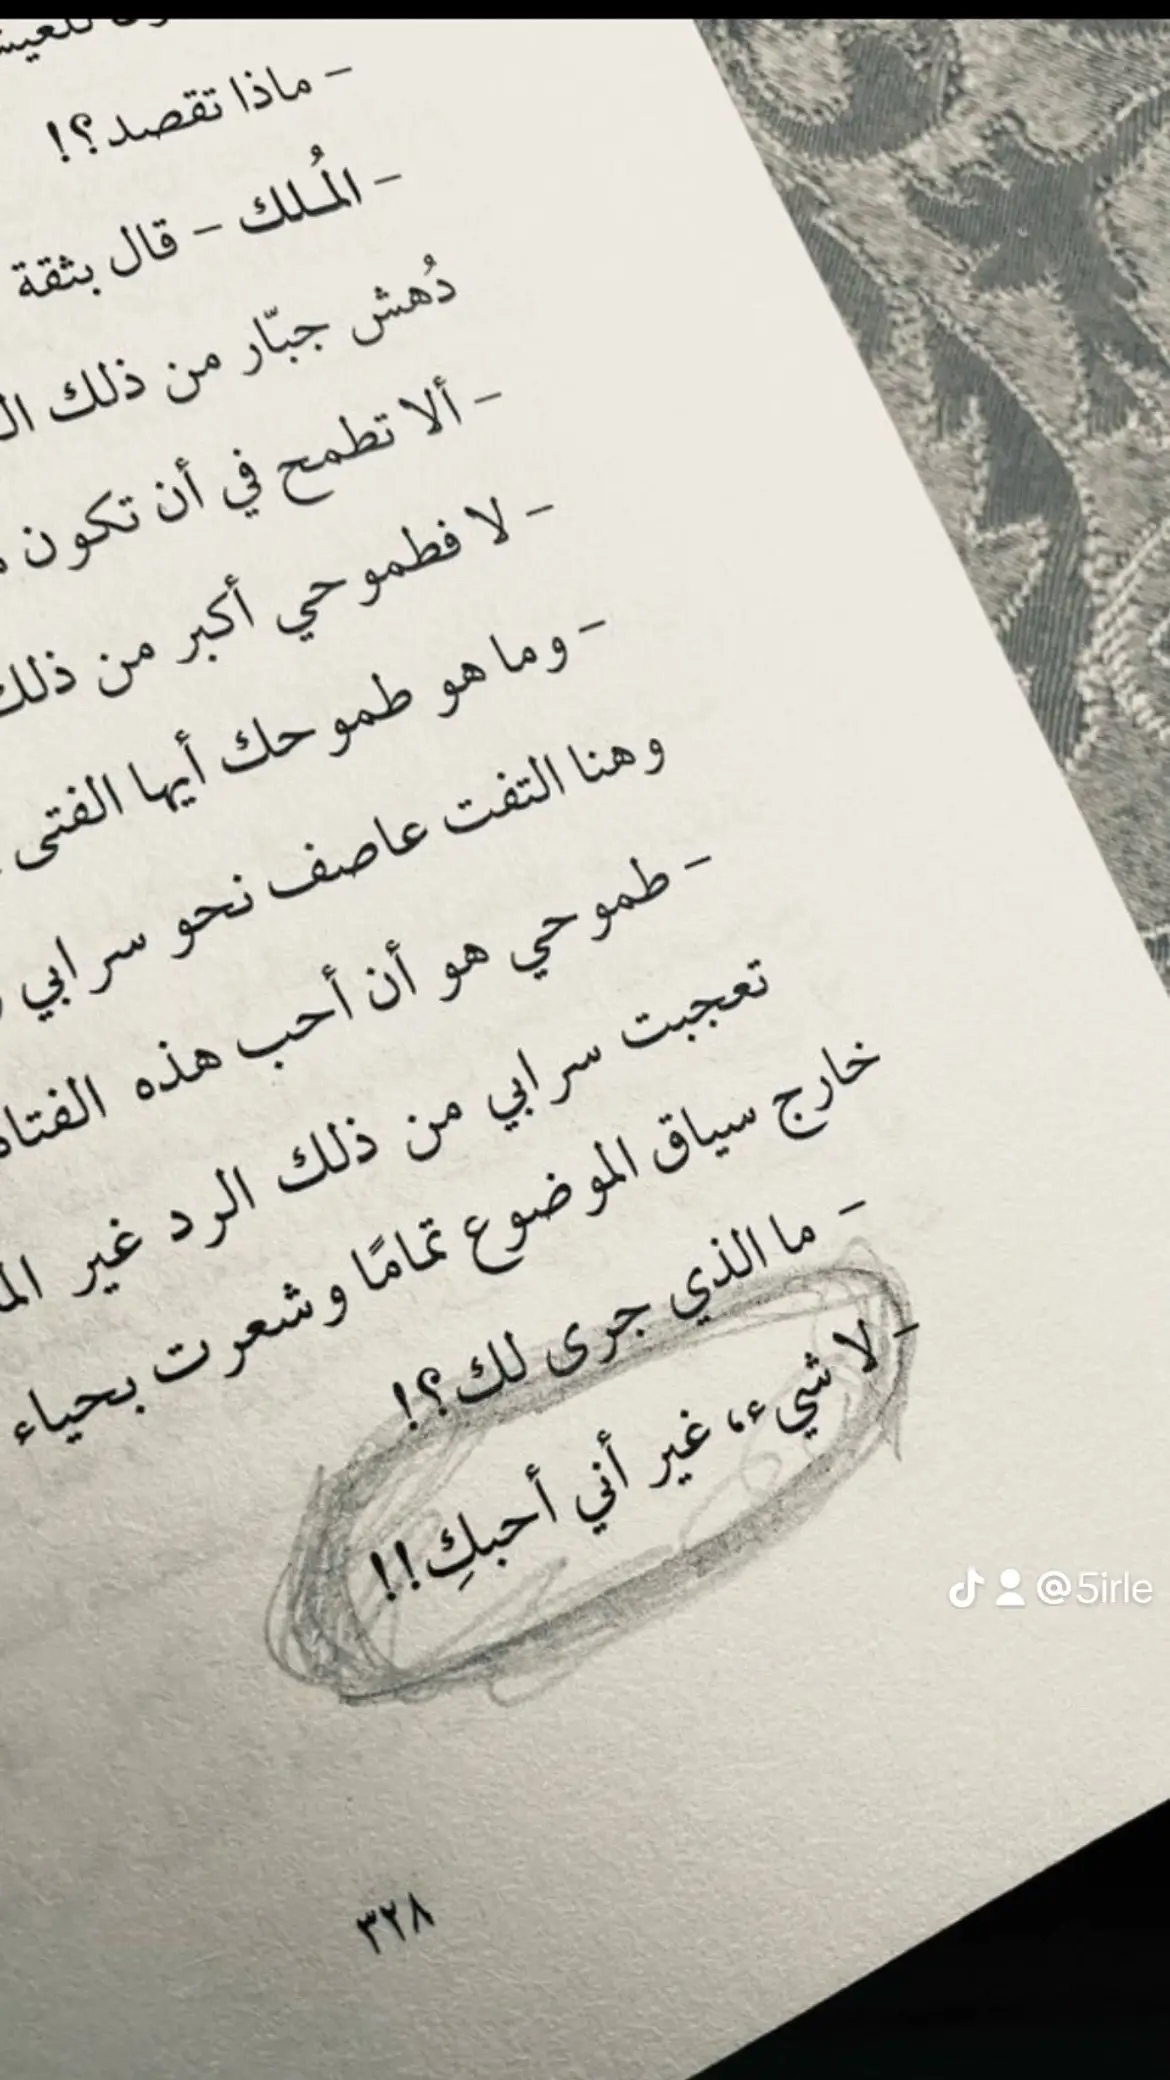 - ماذا تقصد؟!
- المُلك - قال بثقة
دُهش جبّار من ذلك
- ألا تطمح في أن تكون
- لا فطموحي أكبر من ذلك
- وما هو طموحك أيها الفتى
وهنا التفت عاصف نحو سرابي
- طموحي هو أن أحب هذه الفتاة
تعجبت سرابي من ذلك الرد غير
خارج سياق الموضوع تمامًا وشعرت بحياء
- ما الذي جرى لك؟!
- لا شيء، غير أني أحبكِ!!
٣٢٨
@5irle